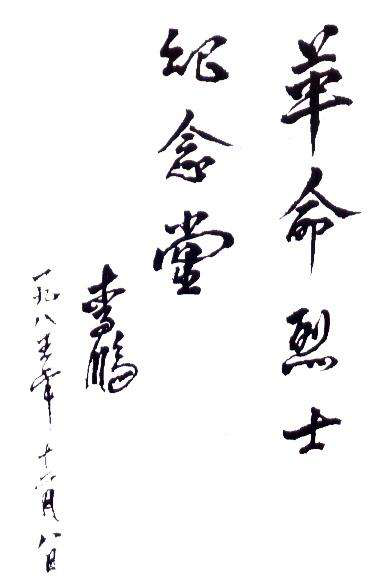 革命烈士
纪念堂
李鹏
一九八五年十二月八日